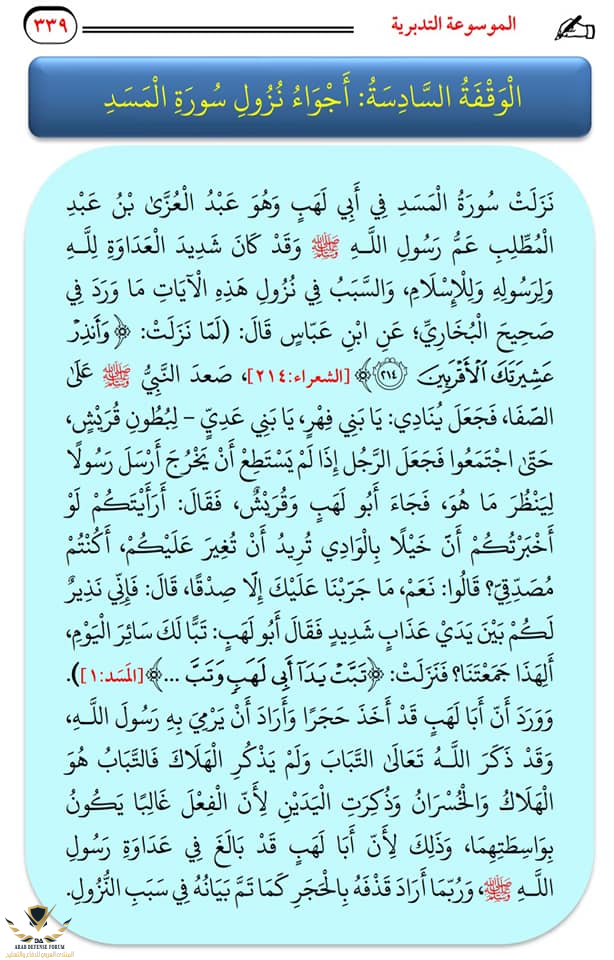 الموسوعة التدبرية
٣٣٩
الْوَقْفَةُ السَّادِسَةُ: أَجْوَاءُ نُزُولِ سُورَةِ الْمَسَدِ
نَزَلَتْ سُورَةُ الْمَسَدِ فِي أَبِي لَهَبٍ وَهُوَ عَبْدُ الْعُزَّىٰ بْنُ عَبْدِ
الْمُطَّلِبِ عَمُّ رَسُولِ اللَّـهِ ﷺ وَقَدْ كَانَ شَدِيدَ الْعَدَاوَةِ لِلَّـهِ
وَلِرَسُولِهِ وَلِلْإِسْلَامِ، وَالسَّبَبُ فِي نُزُولِ هَذِهِ الْآيَاتِ مَا وَرَدَ فِي
صَحِيحِ الْبُخَارِيِّ؛ عَنِ ابْنِ عَبَّاسٍ قَالَ: (لَمَّا نَزَلَتْ: ﴿وَأَنذِرْ
عَشِيرَتَكَ ٱلْأَقْرَبِينَ ٢١٤﴾ [الشعراء:٢١٤]، صَعدَ النَّبِيُّ ﷺ عَلَىٰ
الصَّفَا، فَجَعَلَ يُنَادِي: يَا بَنِي فِهْرٍ، يَا بَنِي عَدِيٍّ – لِبُطُونِ قُرَيْشٍ،
حَتَّىٰ اجْتَمَعُوا فَجَعَلَ الرَّجُلُ إِذَا لَمْ يَسْتَطِعْ أَنْ يَخْرُجَ أَرْسَلَ رَسُولًا
لِيَنْظُرَ مَا هُوَ، فَجَاءَ أَبُو لَهَبٍ وَقُرَيْشٌ، فَقَالَ: أَرَأَيْتَكُمْ لَوْ
أَخْبَرْتُكُمْ أَنَّ خَيْلًا بِالْوَادِي تُرِيدُ أَنْ تُغِيرَ عَلَيْكُمْ، أَكُنْتُمْ
مُصَدِّقِيَّ؟ قَالُوا: نَعَمْ، مَا جَرَبْنَا عَلَيْكَ إِلَّا صِدْقًا، قَالَ: فَإِنِّي نَذِيرٌ
لَكُمْ بَيْنَ يَدَيْ عَذَابٍ شَدِيدٍ فَقَالَ أَبُو لَهَبٍ: تَبًّا لَكَ سَائِرَ الْيَوْمِ،
أَلِهَذَا جَمَعْتَنَا؟ فَنَزَلَتْ: ﴿تَبَّتْ يَدَآ أَبِى لَهَبٍ وَتَبَّ ...﴾ [المَسَد:١]).
وَوَرَدَ أَنَّ أَبَا لَهَبٍ قَدْ أَخَذَ حَجَرًا وَأَرَادَ أَنْ يَرْمِيَ بِهِ رَسُولَ اللَّـهِ،
وَقَدْ ذَكَرَ اللَّـهُ تَعَالَى التَّبَابَ وَلَمْ يَذْكُرِ الْهَلَاكَ فَالتَّبَابُ هُوَ
الْهَلَاكُ وَالْخُسْرَانُ وَذُكِرَتِ الْيَدَيْنِ لِأَنَّ الْفِعْلَ غَالِبًا يَكُونُ
بِوَاسِطَتِهِمَا، وَذَلِكَ لِأَنَّ أَبَا لَهَبٍ قَدْ بَالَغَ فِي عَدَاوَةِ رَسُولِ
اللَّـهِ ﷺ، وَرُبَّمَا أَرَادَ قَذْفَهُ بِالْحَجَرِ كَمَا تَمَّ بَيَانُهُ فِي سَبَبِ النُّزُولِ.
DA
ARAB DEFENSE FORUM
المنتدى العربي للدفاع والتسليح